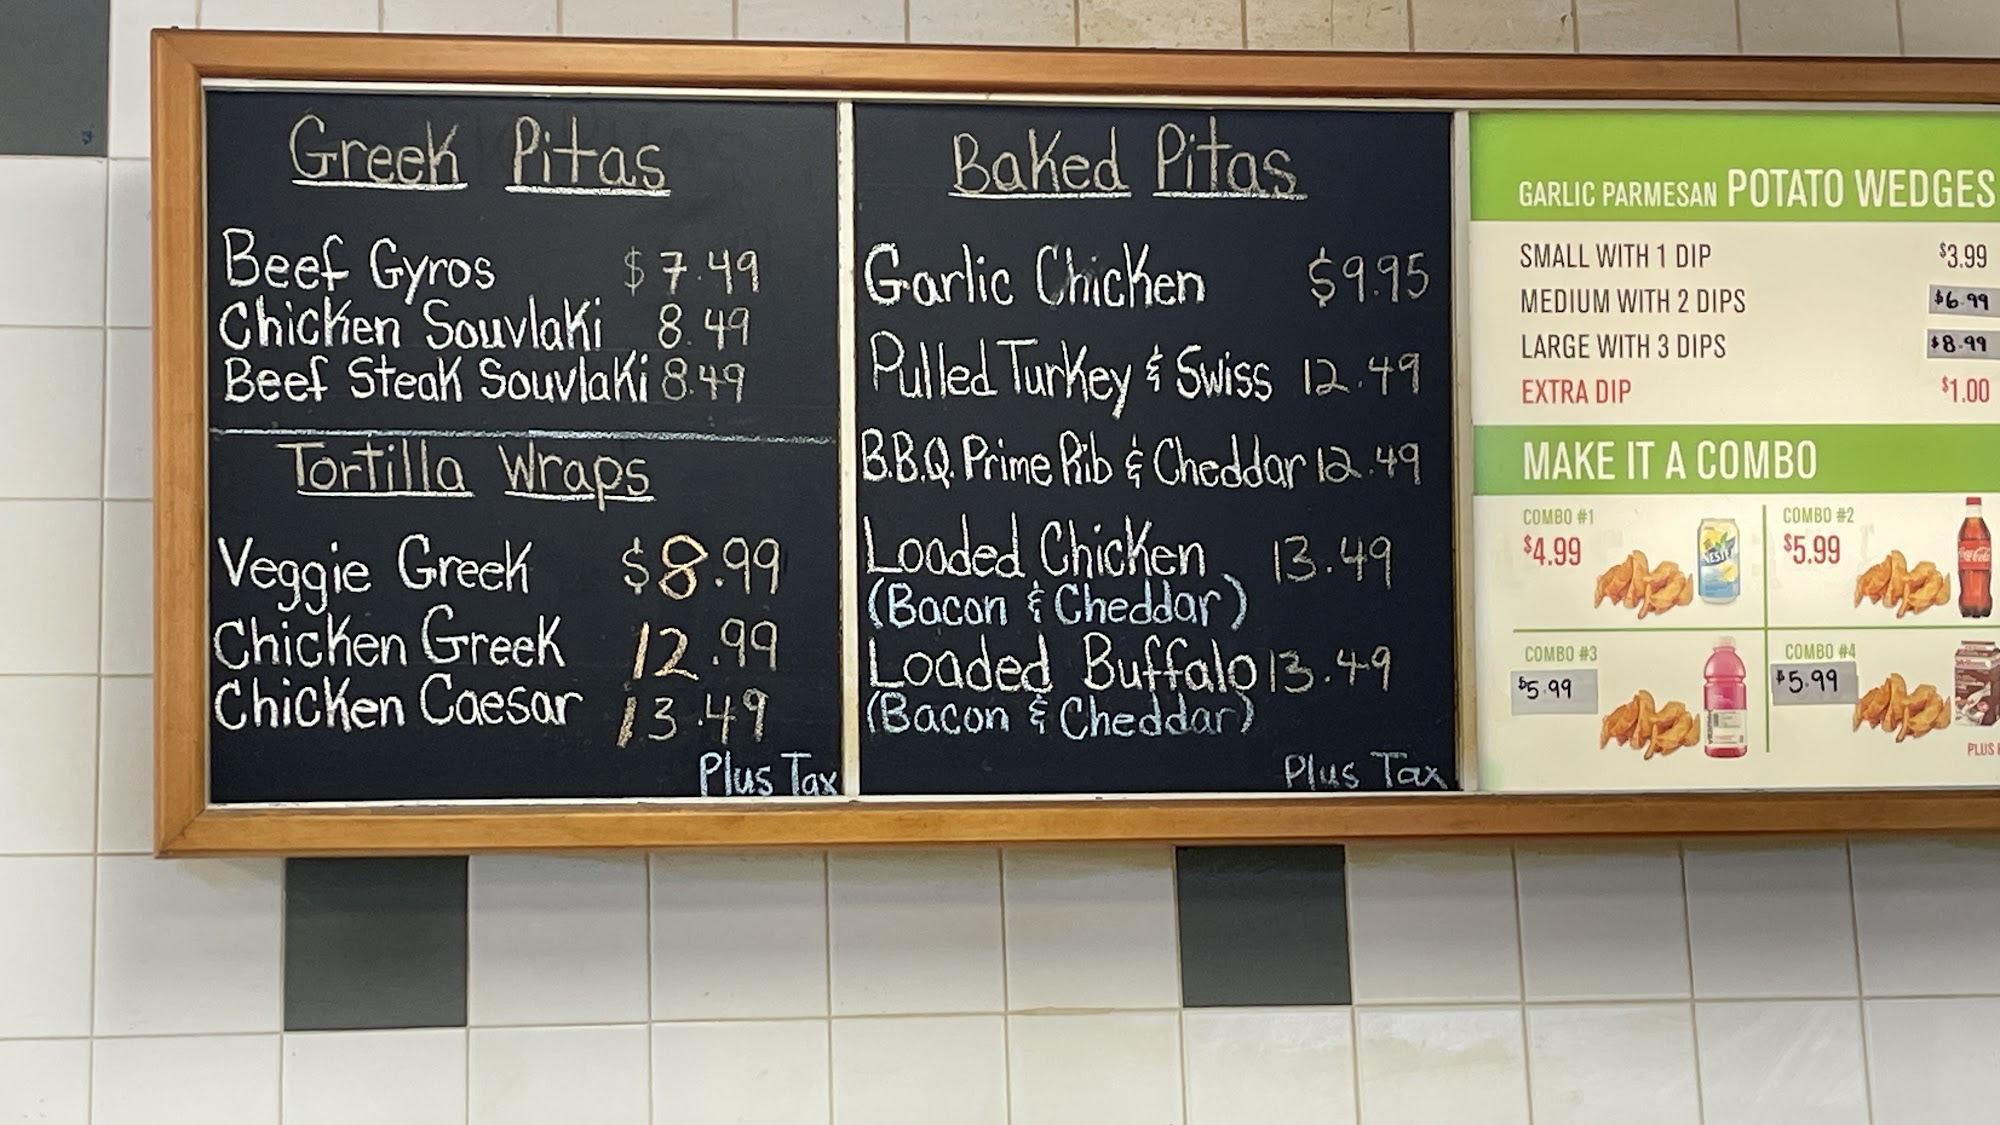 Greek Pitas
Beef Gyros $7.49
Chicken Souvlaki 8.49
Beef Steak Souvlaki 8.49
Tortilla Wraps
Veggie Greek $8.99
Chicken Greek 12.99
Chicken Caesar 13.49
Plus Tax
Baked Pitas
Garlic Chicken $9.95
Pulled Turkey & Swiss 12.49
B.B.Q. Prime Rib & Cheddar 12.49
Loaded Chicken 13.49
(Bacon & Cheddar)
Loaded Buffalo 13.49
(Bacon & Cheddar)
Plus Tax
GARLIC PARMESAN POTATO WEDGES
SMALL WITH 1 DIP $3.99
MEDIUM WITH 2 DIPS $6.99
LARGE WITH 3 DIPS $8.99
EXTRA DIP $1.00
MAKE IT A COMBO
COMBO #1
$4.99
COMBO #2
$5.99
Coca-Cola
COMBO #3
$5.99
COMBO #4
$5.99
PLUS